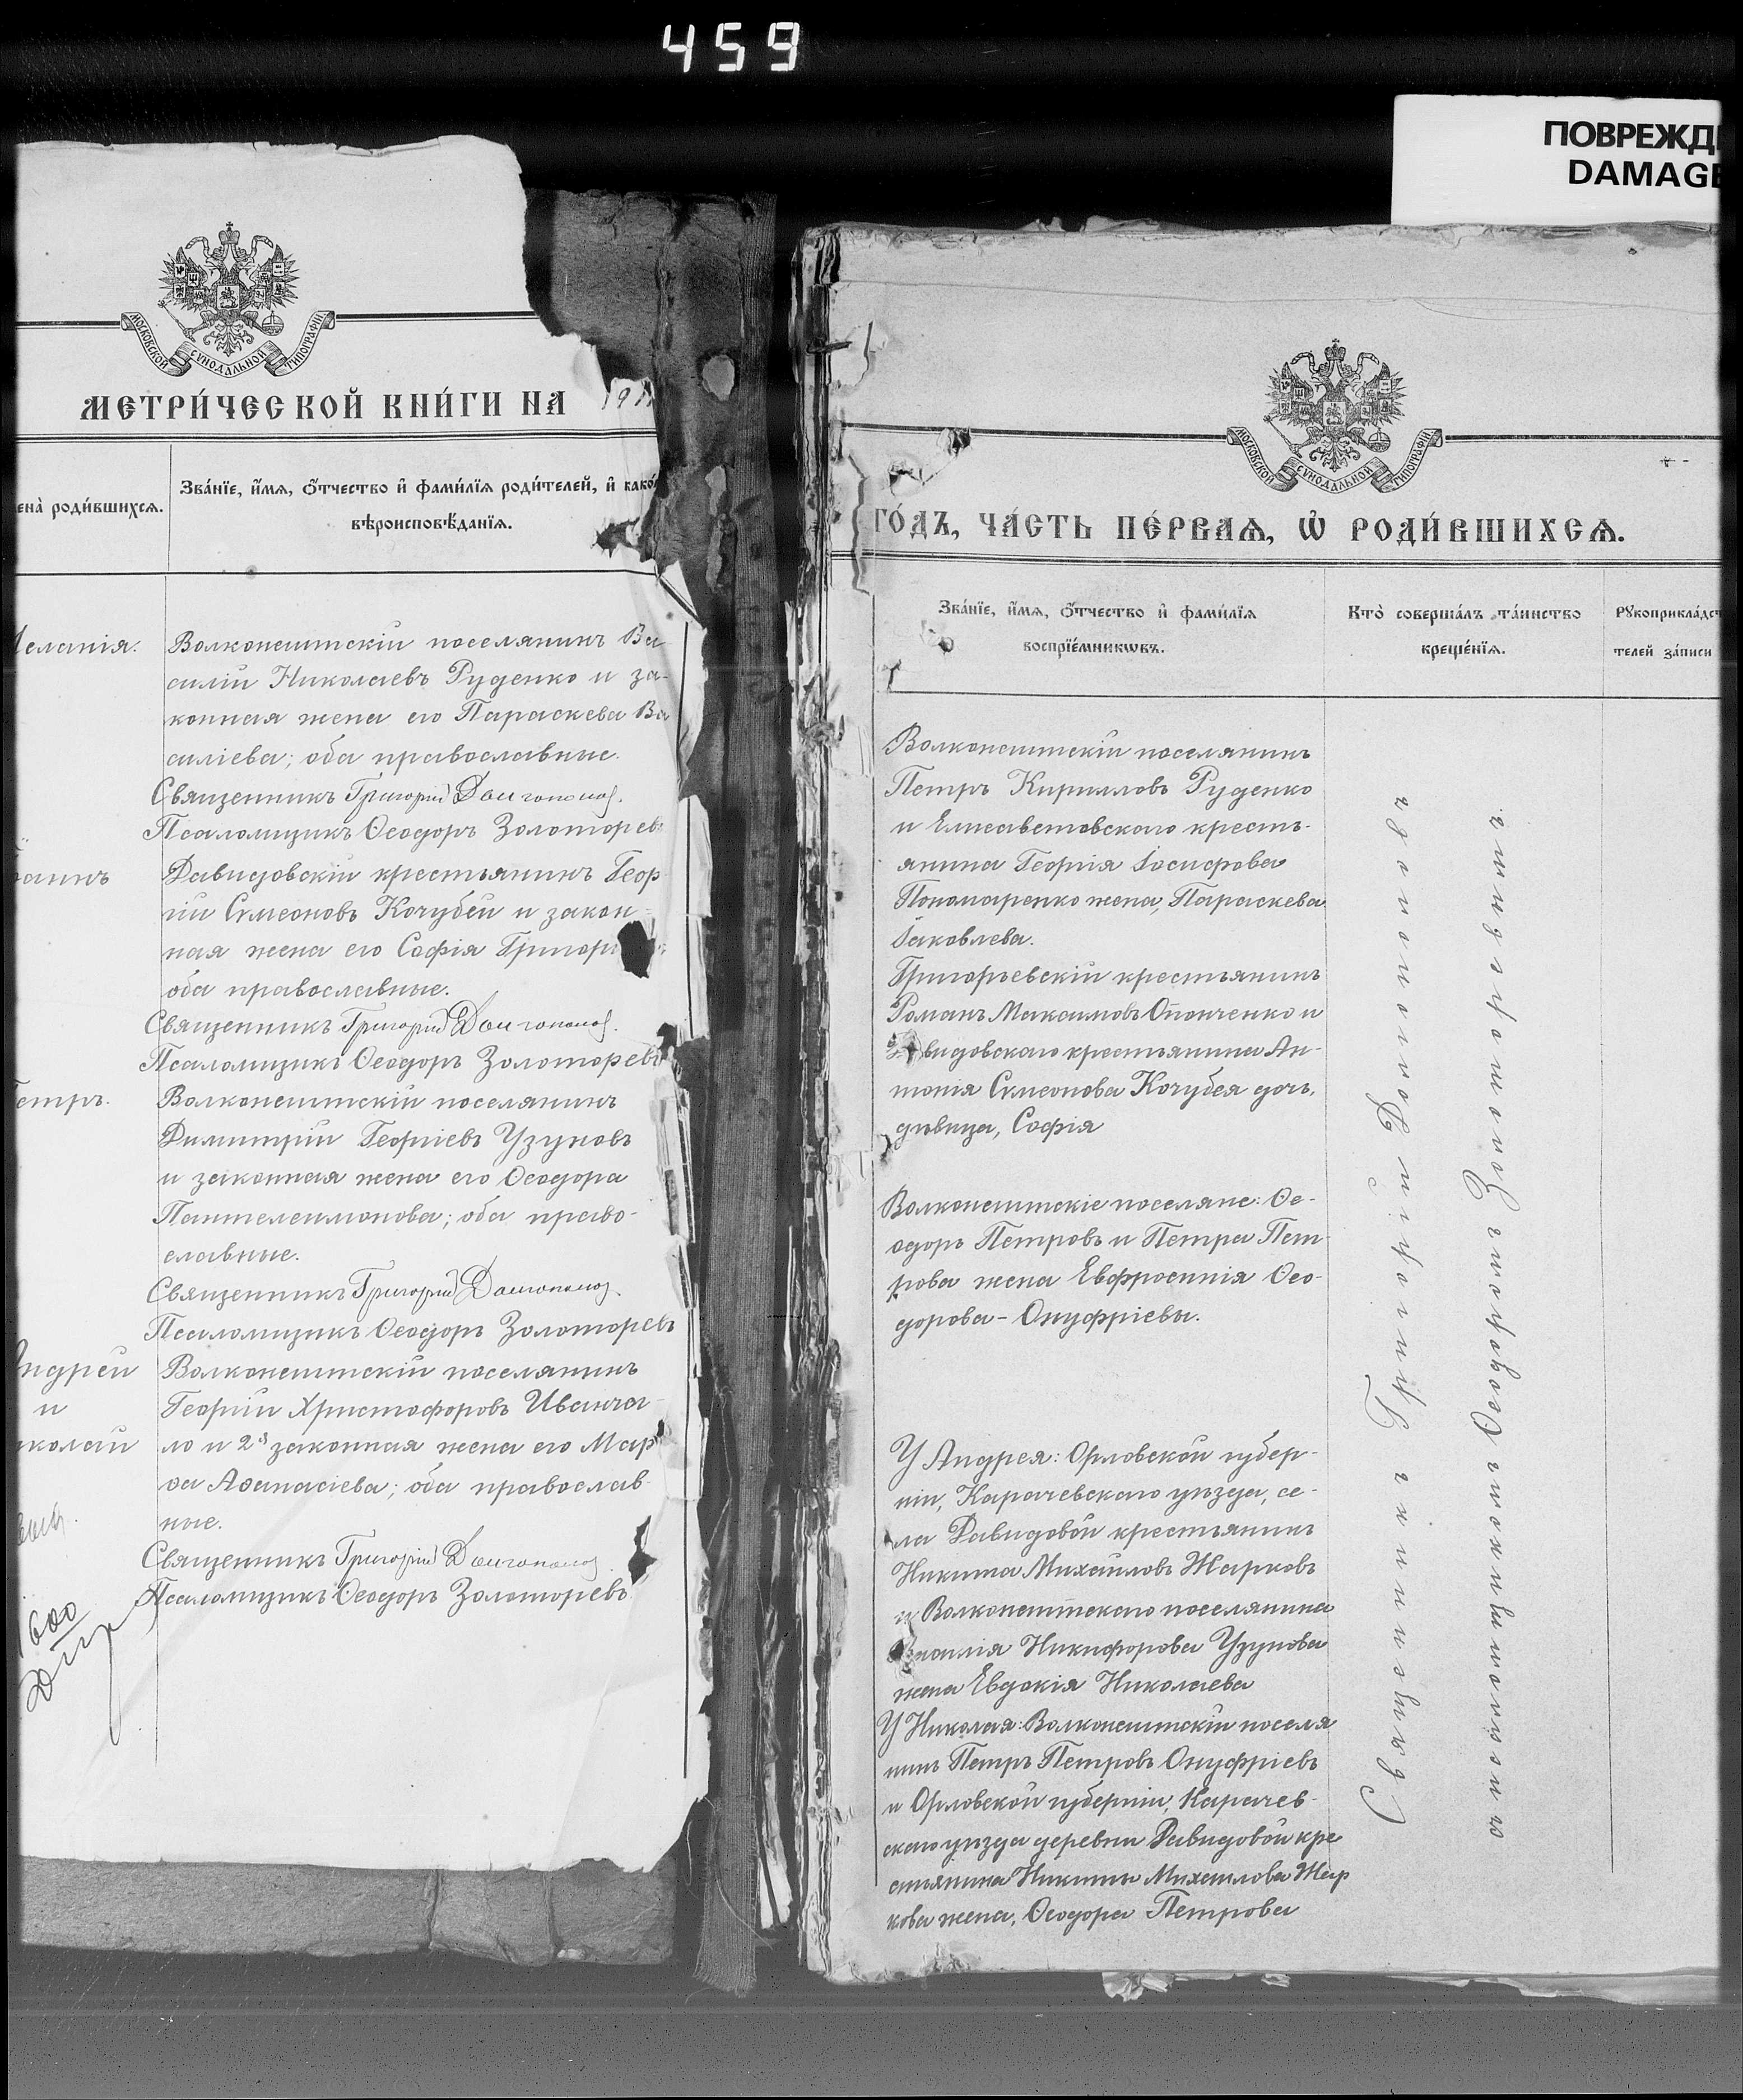 459
ПОВРЕЖД
DAMAGE
МОСКОВСКОЙ СѴНОДАЛЬНОЙ ТИПОГРАФІИ
МЕТРИ́ЧЕСКОЙ КНИ́ГИ НА 191
ена̀ роди́вшихсѧ.
Зва́нїе, и҆́мѧ, ѻ҆́тчество и҆ фами́лїѧ роди́телей, и҆ како́
вѣроисповѣ́данїѧ.
еланія.
Волконештскій поселянинъ Ва
силій Николаевъ Руденко и за-
конная жена его Параскева Ва
силіева; оба православные.
Священникъ Григорій Долгополов.
Псаломщикъ Ѳеодоръ Золоторевъ
оаннъ
Давидовскій крестьянинъ Геор
гій Симеоновъ Кочубей и закон-
ная жена его Софія Григорі
оба православные.
Священникъ Григорій Долгополов.
Псаломщикъ Ѳеодоръ Золоторевъ
етръ.
Волконештскій поселянинъ
Димитрій Георгіевъ Узуновъ
и законная жена его Ѳеодора
Пантелеимонова; оба право-
славные.
Священникъ Григорій Долгополов.
Псаломщикъ Ѳеодоръ Золоторевъ
Андрей
и
иколай
Волконештскій поселянинъ
Георгій Христофоровъ Иванча-
ло и 2я законная жена его Мар
ѳа Аѳанасіева; оба православ-
ные.
Священникъ Григорій Долгополов
Псаломщикъ Ѳеодоръ Золоторевъ.
1600
МОСКОВСКОЙ СѴНОДАЛЬНОЙ ТИПОГРАФІИ
ГО́ДЪ, ЧА́СТЬ ПЕ́РВАѦ, Ѡ҆ РОДИ́ВШИХСѦ.
Зва́нїе, и҆́мѧ, ѻ҆́тчество и҆ фами́лїѧ
воспрїе́мникѡвъ.
Кто̀ соверша́лъ та́инство
креще́нїѧ.
Рꙋкоприкла́дст
телей за́писи
Волконештскій поселянинъ
Петръ Кирилловъ Руденко
и Елисаветовскаго кресть-
янина Георгія Іосифова
Пономаренко жена, Параскева
Іаковлева.
Григорьевскій крестьянинъ
Романъ Максимовъ Опонченко и
видовскаго крестьянина Ан-
тонія Симеонова Кочубея дочь,
дѣвица, Софія
Волконештскіе поселяне: Ѳе-
одоръ Петровъ и Петра Пет-
рова жена Евфросинія Ѳео-
дорова - Онуфріевы.
У Андрея: Орловской губер-
ніи, Карачевскаго уѣзда, се-
ла Давидовой крестьянинъ
Никита Михаиловъ Жарковъ
и Волконештскаго поселянина
Василія Никифорова Узунова
жена Евдокія Николаева
У Николая: Волконештскій поселя
нинъ Петръ Петровъ Онуфріевъ
и Орловской губерніи, Карачев-
скаго уѣзда деревни Давидовой кре
стьянина Никиты Михаилова Жар
кова жена, Ѳеодора Петрова
Священникъ Григорій Долгополовъ
съ псаломщикомъ Ѳеодоромъ Золоторевымъ.